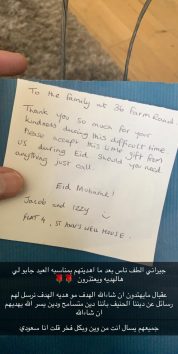 To the family at 36 Farm Road
Thank you so much for your
kindness during this difficult time.
Please accept this little gift from
us during Eid should you need
anything just call.
Eid Mubarak!
Jacob and Izzy
FLAT 4, ST JOHN'S HOUSE.
جيراني الطف ناس بعد ما اهديتهم بمناسبه العيد جابو لي
هالهديه ويعتذرون
عقبال مايهتدون ان شاءالله الهدف مو هديه الهدف نرسل لهم
رسائل عن ديننا الحنيف بأننا دين متسامح ودين يسر الله يهديهم
ان شاءالله
جميعهم يسال انت من وين وبكل فخر قلت انا سعودي